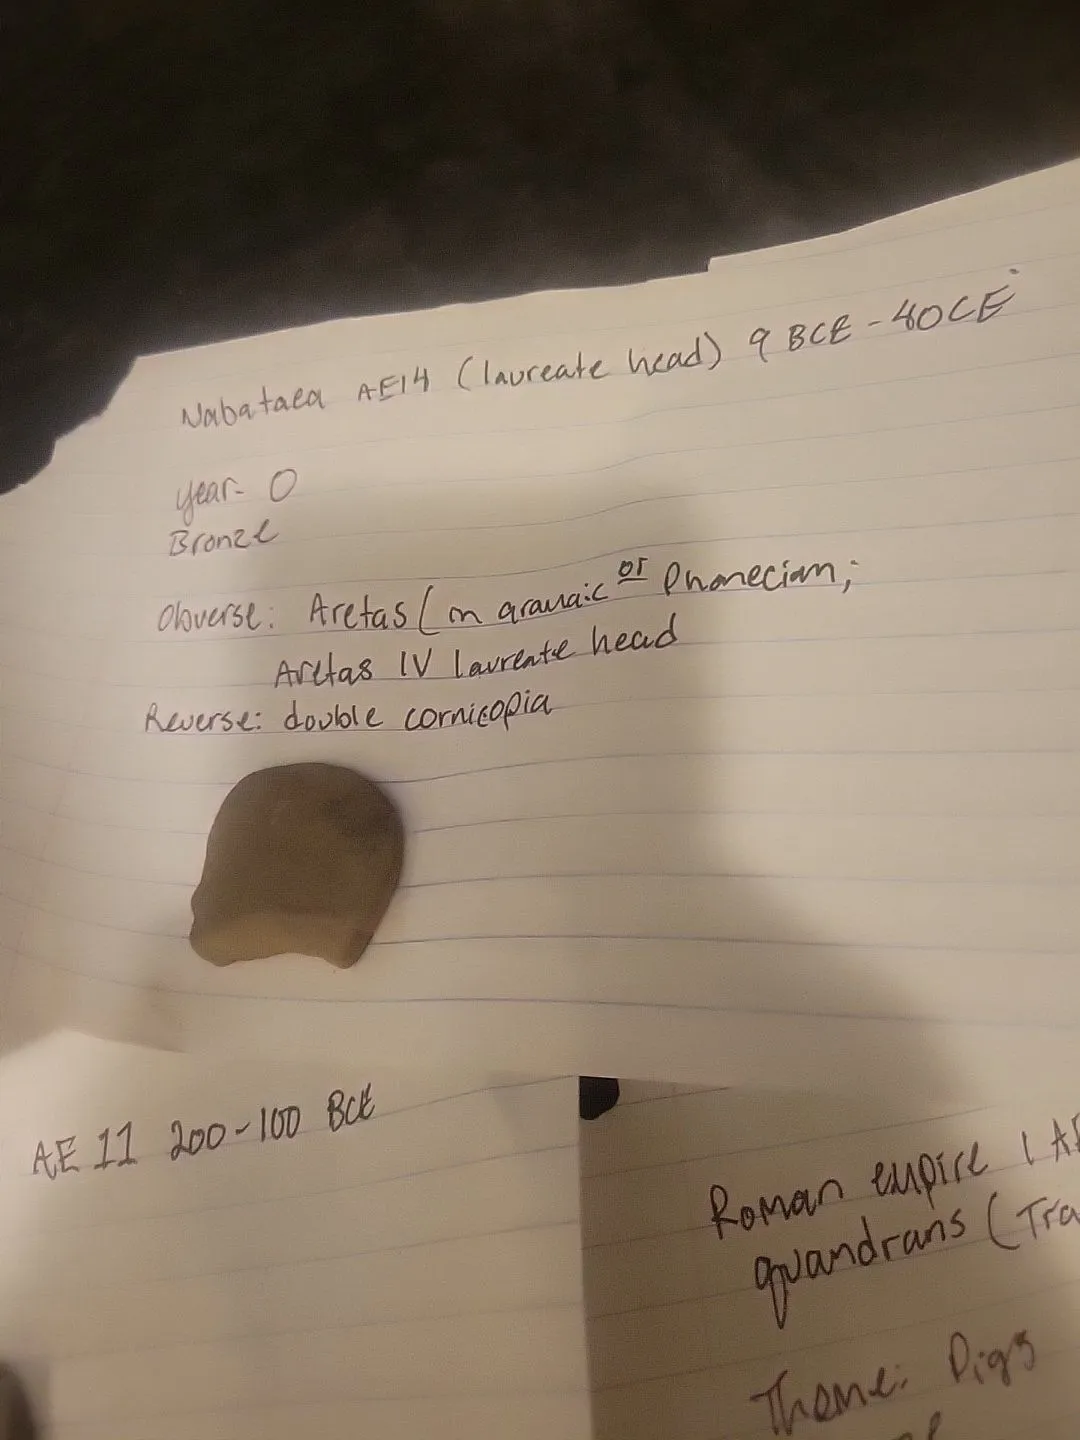 Nabataea AE14 (laureate head) 9 BCE - 40CE
year- 0
Bronze
Obverse: Aretas (in aramaic or Phonecian;
Aretas IV laureate head
Reverse: double cornicopia
AE 11 200-100 BCE
Roman empire 1 AE
quandrans (Tra
Theme: Pigs